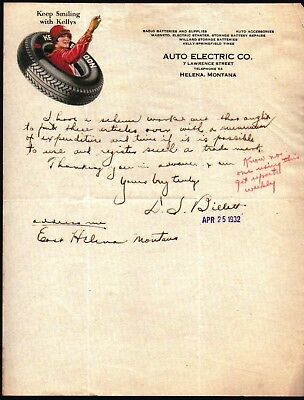 Keep Smiling
with Kellys
RADIO BATTERIES AND SUPPLIES
AUTO ACCESSORIES
MAGNETO, ELECTRIC STARTER, STORAGE BATTERY REPAIRS
WILLARD STORAGE BATTERIES
KELLY-SPRINGFIELD TIRES
AUTO ELECTRIC CO.
7 LAWRENCE STREET
TELEPHONE 93
HELENA, MONTANA
I have a scheme worked out that ought
to put these articles over with a minimum
expenditure and time if it is possible
to use and register such a trade mark.
Thanking you in advance, I am
Yours very truly
L. S. Billett
APR 25 1932
Know no
one using this
get reports
weekly
address me
East Helena Montana